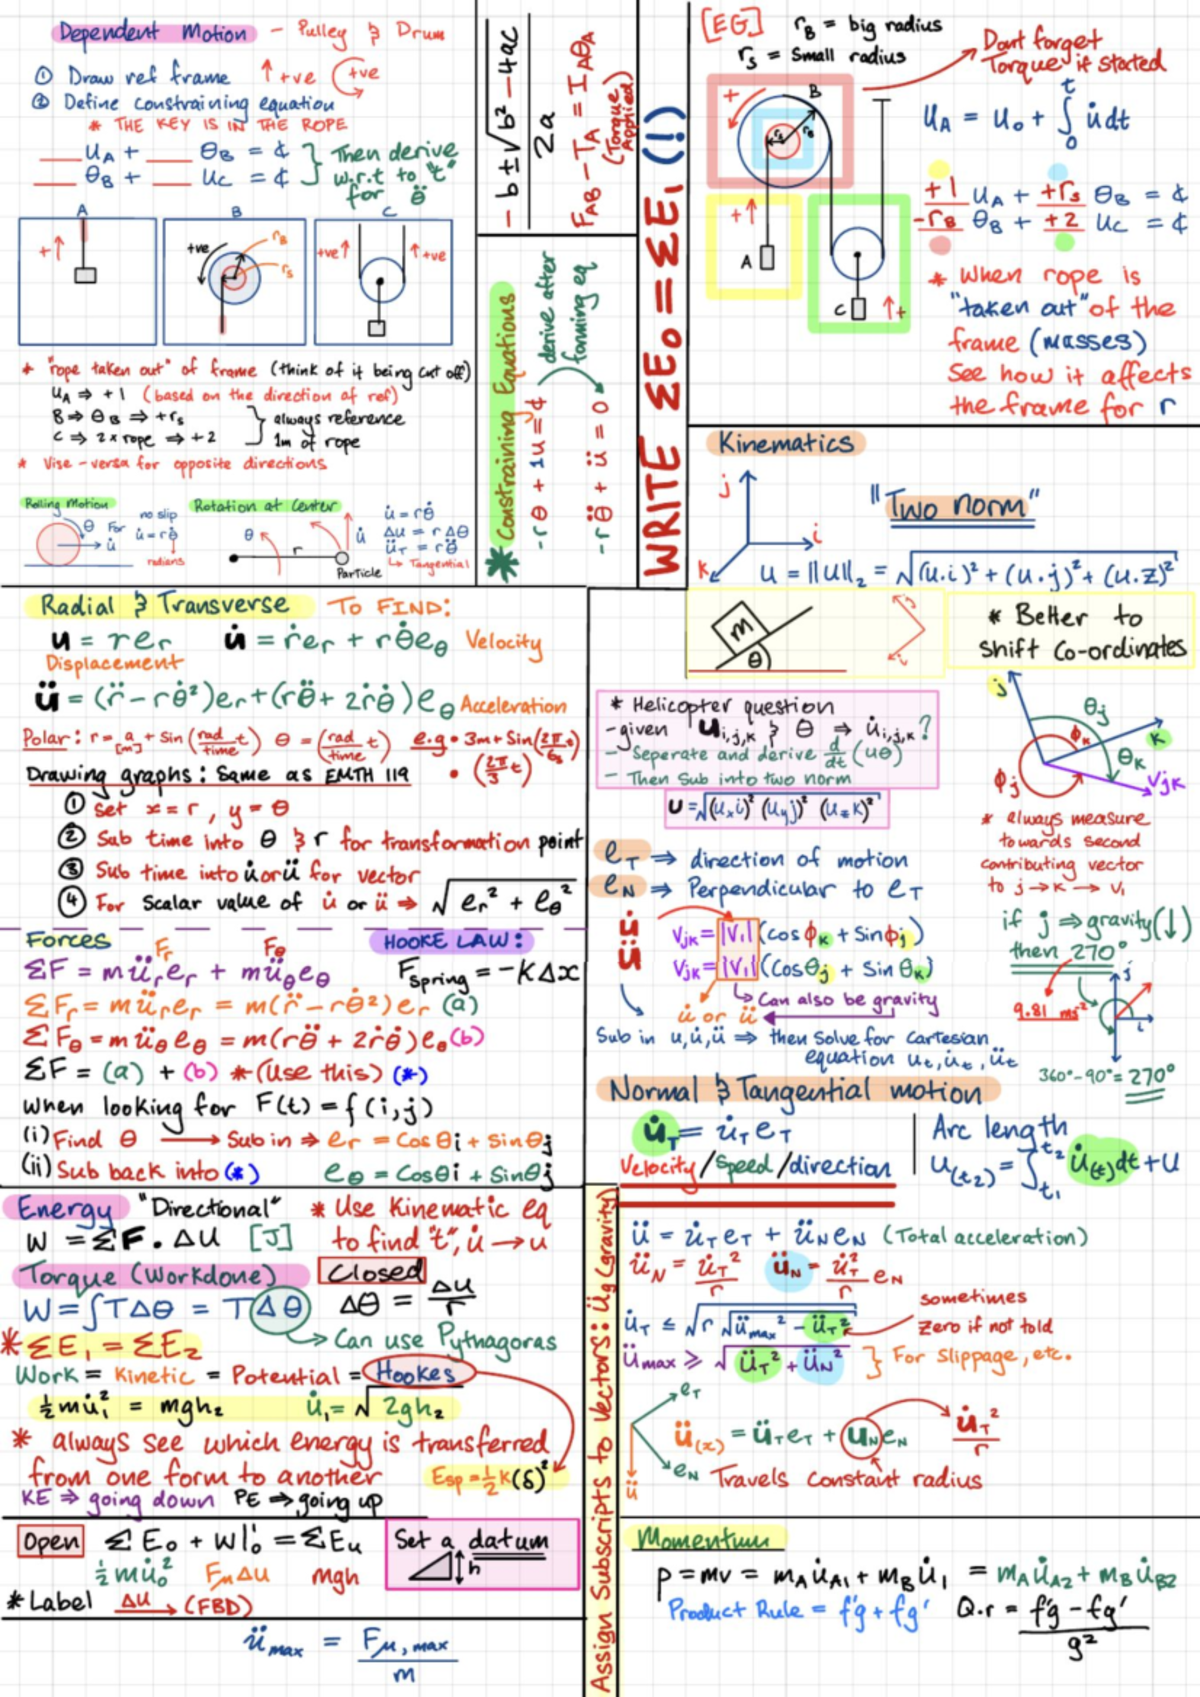 Dependent Motion - Pulley & Drum
① Draw ref frame ↑+ve +ve
② Define constraining equation
* THE KEY IS IN THE ROPE
___ u_A + ___ θ_B = ¢
___ θ_B + ___ u_C = ¢
Then derive
w.r.t to "t"
for θ̈
A B C
+↑ +ve r_B r_S +ve↑ ↑+ve
* "rope taken out" of frame (think of it being cut off)
u_A ⇒ +1 (based on the direction of ref)
B ⇒ θ_B ⇒ +r_S
C ⇒ 2 x rope ⇒ +2
always reference
1m of rope
* Vise-versa for opposite directions
Rolling Motion
θ For no slip
u̇ u̇ = rθ̇
radians
Rotation at Center
θ r u̇
Particle
u̇ = rθ̇
Δu = rΔθ
ü_T = rθ̈
↳ Tangential
-b ± √b² - 4ac
2a
F_AB - T_A = I_A θ̈_A
(Torque Applied)
* Constraining Equations
derive after
forming eq
-rθ + 1u = ¢
-rθ̈ + ü = 0
WRITE ΣE₀ = ΣE₁ (!)
[EG] r_B = big radius
r_S = Small radius
Dont forget
Torque if stated
+ B r_S r_B
u_A = u₀ + ∫₀ᵗ u̇ dt
+1 u_A + +r_S θ_B = ¢
-r_B θ_B + +2 u_C = ¢
+↑ A
C ↑+
* When rope is
"taken out" of the
frame (masses)
See how it affects
the frame for r
Kinematics
j i k
"Two norm"
u = ||u||₂ = √(u.i)² + (u.j)² + (u.z)²
m θ j i
* Better to
shift Co-ordinates
Radial & Transverse TO FIND:
u = re_r u̇ = ṙe_r + rθ̇e_θ Velocity
Displacement
ü = (r̈ - rθ̇²)e_r + (rθ̈ + 2ṙθ̇)e_θ Acceleration
Polar: r = a [m] + Sin(rad/time t) θ = (rad/time t) e.g • 3m + Sin(2π/6s t)
• (2π/3 t)
Drawing graphs: Same as EMTH 119
① set x = r, y = θ
② Sub time into θ & r for transformation point
③ Sub time into u̇ or ü for vector
④ For Scalar value of u̇ or ü ⇒ √e_r² + e_θ²
* Helicopter question
- given u_i,j,k & θ ⇒ u̇_i,j,k?
- Seperate and derive d/dt (uθ)
- Then Sub into two norm
u = √(u_x i)² (u_y j)² (u_z k)²
j θ_j k φ_k θ_k φ_j V_jk
* always measure
towards second
contributing vector
to j → k → v₁
e_T ⇒ direction of motion
e_N ⇒ Perpendicular to e_T
u̇
ü
V_jk = |V₁| (cos φ_k + Sin φ_j)
V_jk = |V₁| (Cos θ_j + Sin θ_k)
↳ Can also be gravity
u̇ or ü
Sub in u, u̇, ü ⇒ then Solve for Cartesian
equation u_t, u̇_t, ü_t
if j ⇒ gravity (↓)
then 270°
9.81 ms⁻² j i
360° - 90° = 270°
Forces F_r F_θ HOOKE LAW:
ΣF = mü_r e_r + mü_θ e_θ F_spring = -kΔx
ΣF_r = mü_r e_r = m(r̈ - rθ̇²)e_r (a)
ΣF_θ = mü_θ e_θ = m(rθ̈ + 2ṙθ̇)e_θ (b)
ΣF = (a) + (b) * (Use this) (*)
When looking for F(t) = f(i,j)
(i) Find θ → Sub in ⇒ e_r = Cosθi + sinθj
(ii) Sub back into (*) e_θ = Cosθi + Sinθj
Normal & Tangential motion
u̇_T = u̇_T e_T
Velocity / Speed / direction
Arc length
u(t₂) = ∫_t₁^t₂ u̇(t) dt + u
Energy "Directional" * Use Kinematic eq
W = ΣF . Δu [J] to find "t", u̇ → u
Torque (Workdone) Closed
W = ∫TΔθ = TΔθ Δθ = Δu/r
→ Can use Pythagoras
* ΣE₁ = ΣE₂
Work = Kinetic = Potential = Hookes
½mu̇₁² = mgh₂ u̇₁ = √2gh₂
* always see which energy is transferred
from one form to another E_sp = ½k(δ)²
KE ⇒ going down PE ⇒ going up
Open ΣE₀ + W|₀¹ = ΣE_u
½mu̇₀² F_μΔu mgh
* Label Δu → (FBD)
Set a datum
h
ü_max = F_μ,max / m
Assign Subscripts to Vectors: ü_g (gravity)
ü = ü_T e_T + ü_N e_N (Total acceleration)
ü_N = u̇_T²/r ü_N = u̇_T²/r e_N
u̇_T ≤ √r √ü_max² - ü_T²
sometimes
Zero if not told
ü_max ≥ √ü_T² + ü_N² } For slippage, etc.
e_T e_N ü
ü(x) = ü_T e_T + ü_N e_N u̇_T²/r
Travels Constant radius
Momentum
p = mv = m_A u̇_A1 + m_B u̇₁ = m_A u̇_A2 + m_B u̇_B2
Product Rule = f'g + fg' Q.r = f'g - fg' / g²